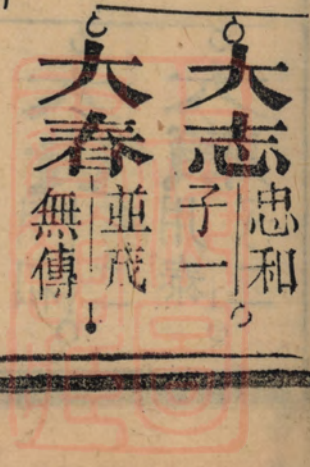 大志
忠和
子一
大春
並茂
無傳